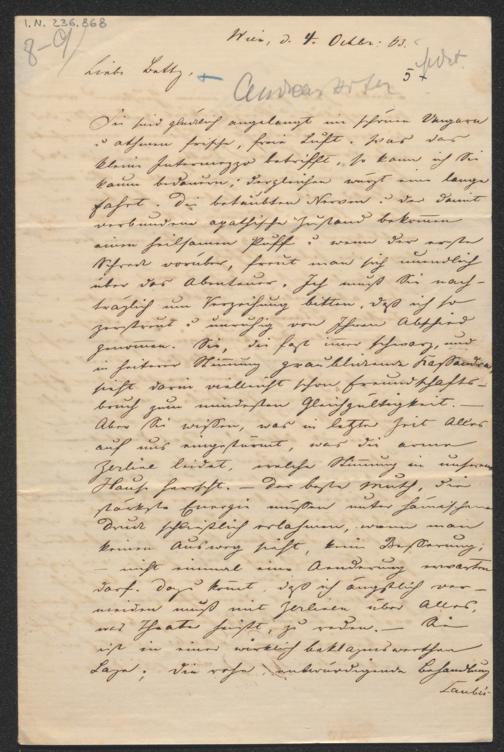 I.N. 236.868
8-9)
Wien, d. 4. Octbr. 63.
Liebe Betty,
5
Sie sind glücklich angelangt im schönen Ungarn
u athmen frische, freie Luft. Was das
kleine Intermezzo betrifft, so kann ich Sie
kaum bedauern; dergleichen würzt eine lange
Fahrt. Die betäubten Nerven u der damit
verbundene apathische Zustand bekommen
einen heilsamen Puff u wenn der erste
Schreck vorüber, freut man sich unendlich
über das Abenteuer. Ich muß Sie nach-
träglich um Verzeihung bitten, daß ich so
zerstreut u unruhig von Ihnen Abschied
genommen. Sie, die fast immer schwarz, und
in heiterer Stimmung graublickende Kassandra,
sieht darin vielleicht schon Freundschafts-
bruch zum mindesten Gleichgültigkeit. —
Aber Sie wissen, was in letzter Zeit Alles
auf uns eingestürmt, was die arme
Zerline leidet, welche Stimmung in unserem
Hause herrscht. — Der beste Muth, die
stärkste Energie müssen unter
Druck schließlich erlahmen, wenn man
keinen Ausweg sieht, keine Besserung,
— nicht einmal eine Aenderung erwarten
darf. Dazu kommt, daß ich ängstlich ver-
meiden muß mit Zerline über Alles,
was Theater heißt, zu reden. — Sie
ist in einer wirklich beklagenswerthen
Lage; die rohe, entwürdigende Behandlung
Laube's